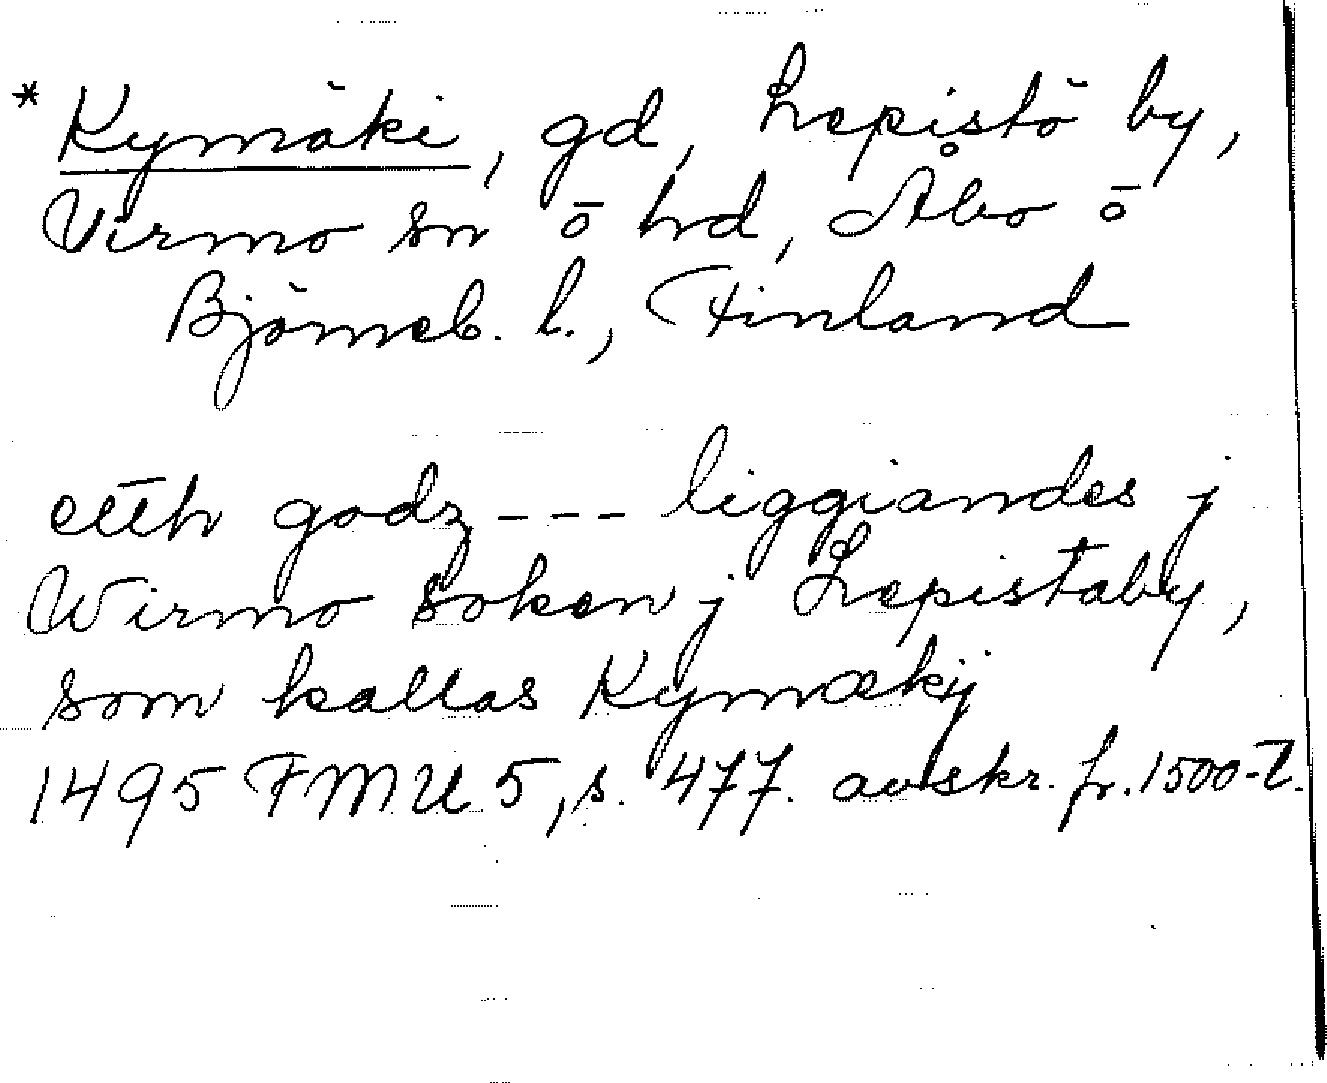 * Kymäki, gd, Lepistö by,
Virmo sn ō hd, Åbo ō
Björneb. l., Finland
etth godz --- liggiandes j
Wirmo soken j Lepistaby,
som kallas Kymækij
1495 FMU 5, s. 477. avskr. fr. 1500-t.